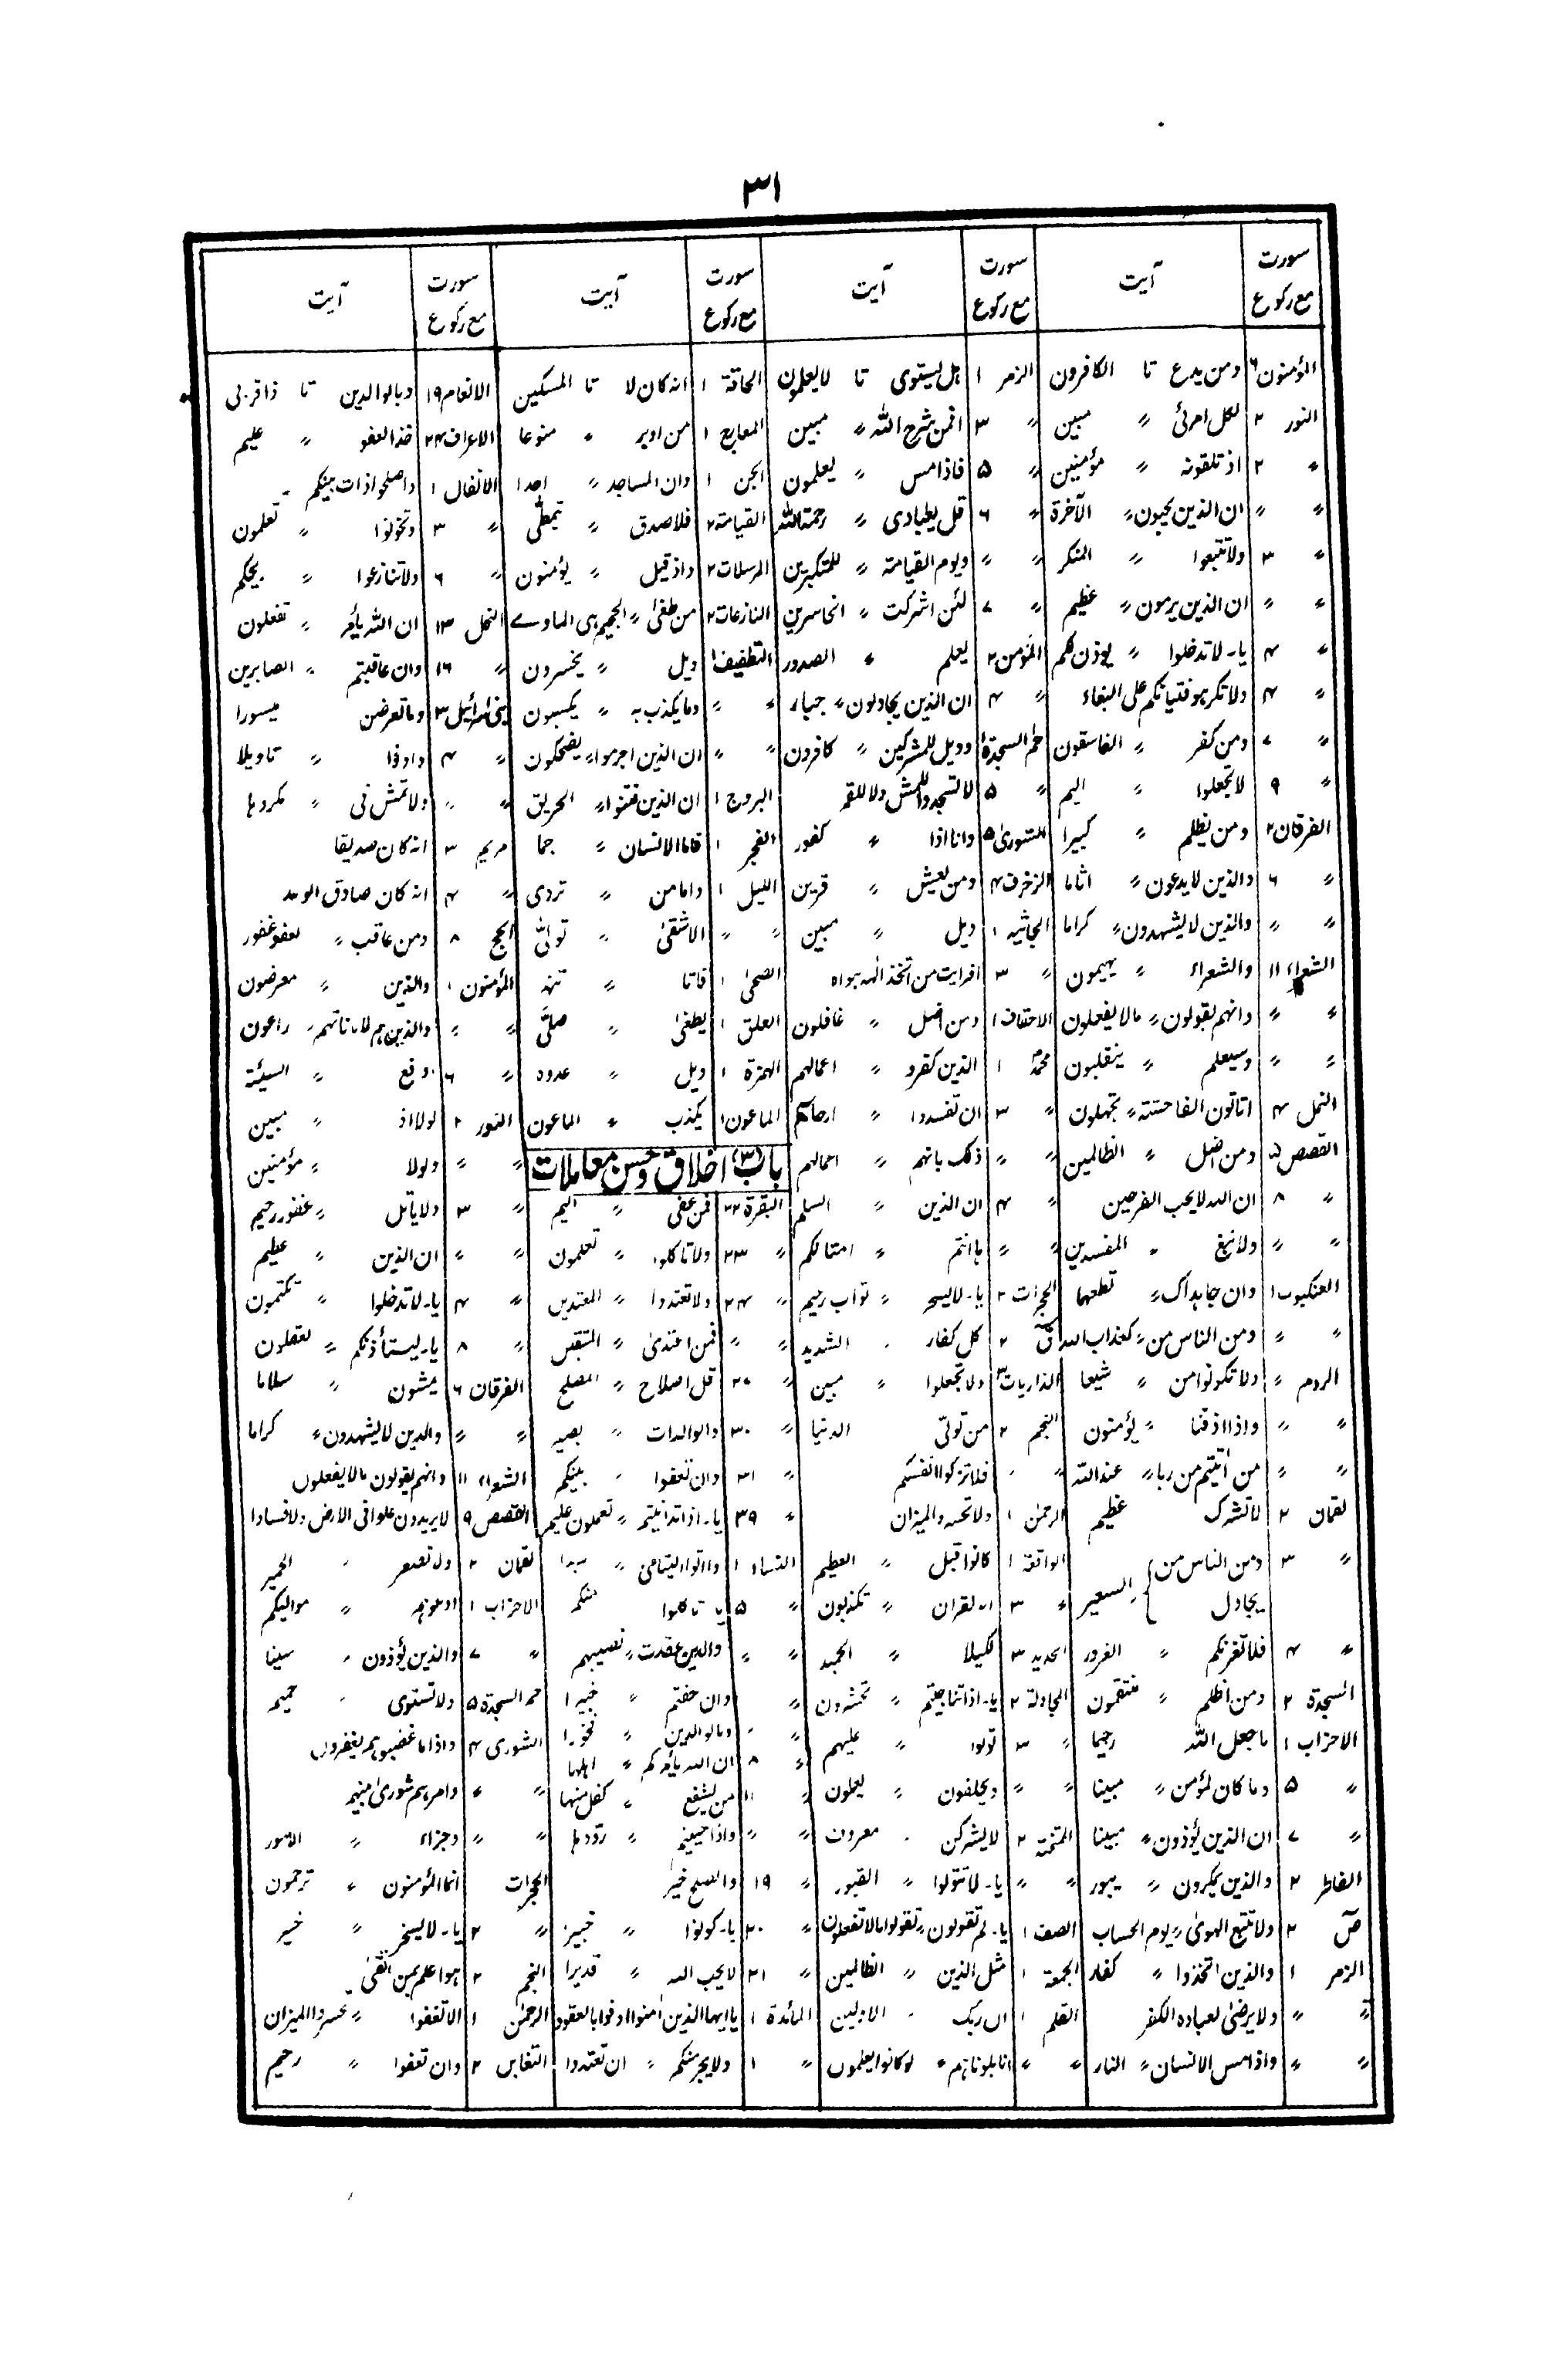 ٣١
سورت مع رکوع آیت
المؤمنون ٦ ومن یدع تا الکافرون
النور ٢ لکل امرئ 〃 مبین
〃 ٢ اذ تلقونہ 〃 مؤمنین
〃 〃 ان الذین یحبون 〃 الآخرة
〃 ٣ ولا تتبعوا 〃 المنکر
〃 〃 ان الذین یرمون 〃 عظیم
〃 ٤ یا۔ لا تدخلوا 〃 یوذن لکم
〃 ٤ ولا تکرہو فتیاتکم علی البغاء
〃 ٧ ومن کفر 〃 الفاسقون
〃 ٩ لا تجعلوا 〃 الیم
الفرقان ٢ ومن یظلم 〃 کبیرا
〃 ٦ والذین لا یدعون 〃 اثاما
〃 〃 والذین لا یشہدون 〃 کراما
الشعراء ١١ والشعراء 〃 یہیمون
〃 〃 وانہم یقولون 〃 مالا یفعلون
〃 〃 وسیعلم 〃 ینقلبون
النمل ٤ اتاتون الفاحشتہ 〃 تجہلون
القصص ٥ ومن اضل 〃 الظالمین
〃 ٨ ان اللہ لا یحب الفرحین
〃 〃 ولا تبغ 〃 المفسدین
العنکبوت ١ وان جاہداک 〃 تطعہما
〃 〃 ومن الناس من 〃 کعذاب اللہ
الروم 〃 ولا تکونوا من 〃 شیعا
〃 〃 واذا اذقنا 〃 یؤمنون
〃 〃 من آتیتم من ربا 〃 عند اللہ
لقمان ٢ لا تشرک عظیم
〃 ٣ ومن الناس من یجادل 〃 السعیر
〃 ٤ فلا تغرنکم 〃 الغرور
السجدة ٢ ومن اظلم 〃 منتقمون
الاحزاب ١ ما جعل اللہ رحیما
〃 ٥ وما کان لمؤمن 〃 مبینا
〃 ٧ ان الذین یؤذون 〃 مبینا
الفاطر ٢ والذین یمکرون 〃 یبور
صٓ ٢ ولا تتبع الہویٰ 〃 یوم الحساب
الزمر ١ والذین اتخذوا 〃 کفار
〃 〃 ولا یرضیٰ لعبادہ الکفر
〃 〃 واذا مس الانسان 〃 النار
سورت مع رکوع آیت
الزمر ١ ہل یستوی تا لا یعلمون
〃 ٣ افمن شرح اللہ 〃 مبین
〃 ٥ فاذا مس 〃 یعلمون
〃 ٦ قل یٰعبادی 〃 رحمة اللہ
〃 〃 ویوم القیامتہ 〃 للمتکبرین
〃 ٧ لئن اشرکت 〃 الخاسرین
المؤمن ٢ یعلم 〃 الصدور
〃 ٤ ان الذین یجادلون 〃 جبار
حٰم السجدة ١ وویل للمشرکین 〃 کافرون
〃 ٥ لا تسجدوا للشمس ولا للقمر
الشوریٰ ٥ وانا اذا 〃 کفور
الزخرف ٤ ومن یعش 〃 قرین
الجاثیہ ١ ویل 〃 مبین
〃 ٣ افرایت من اتخذ الٰہہ ہواہ
الاحقاف ١ ومن اضل 〃 غافلون
محمدؐ ١ الذین کفرو 〃 اعمالہم
〃 ٣ ان تفسدوا 〃 ارحامکم
〃 〃 ذلک بانہم 〃 اعمالہم
〃 ٤ ان الذین 〃 السلم
〃 〃 ہا انتم 〃 امثالکم
الحجرات ٢ یا۔ لا یسخر 〃 تواب رحیم
قٓ ٢ کل کفار 〃 الشدید
الذاریات ٣ ولا تجعلوا 〃 مبین
النجم ٢ من تولیٰ الدنیا
〃 〃 فلا تزکوا انفسکم
الرحمٰن ١ ولا تخسروالمیزان
الواقعہ ١ کانوا قبل 〃 العظیم
〃 ٣ انہ لقران 〃 تکذبون
الحدید ٣ لکیلا 〃 الحمید
المجادلة ٢ یا۔ اذا تناجیتم 〃 تحشرون
〃 ٣ تولوا 〃 علیہم
〃 〃 ویحلفون 〃 یعملون
الممتحنہ ٢ لا یشرکن 〃 معروف
〃 〃 یا۔ لا تتولوا 〃 القبور
الصف ١ یا۔ لم تقولون 〃 تقولوا مالا تفعلون
الجمعة ١ مثل الذین 〃 الظالمین
القلم ١ ان ربک 〃 الاولین
〃 〃 انا بلوناہم 〃 لو کانوا یعلمون
سورت مع رکوع آیت
الحاقة ١ انہ کان لا تا المسکین
المعارج ١ من ادبر 〃 منوعا
الجن ١ وان المساجد 〃 احدا
القیامتہ ٢ فلا صدق 〃 یتمطّی
المرسلات ٢ واذ قیل 〃 یؤمنون
النازعات ٢ من طغیٰ 〃 الجحیم ہی الماوے
التطفیف ١ ویل 〃 یخسرون
〃 〃 وما یکذب بہ 〃 یکسبون
〃 〃 ان الذین اجرموا 〃 یضحکون
البروج ١ ان الذین فتنوا 〃 الحریق
الفجر ١ فاما الانسان 〃 جما
اللیل ١ واما من 〃 تردی
〃 〃 الاشقیٰ 〃 تولیّٰ
الضحیٰ ١ فاما 〃 تنہر
العلق ١ یطغیٰ 〃 صلیّٰ
الہمزة ١ ویل 〃 عدده
الماعون ١ یکذب 〃 الماعون
باب (٣) اخلاق و حسن معاملات
البقرة ٢٢ فمن عفی 〃 الیم
〃 ٢٣ ولا تاکلوا 〃 تعلمون
〃 ٢٤ ولا تعتدوا 〃 المعتدین
〃 〃 فمن اعتدیٰ 〃 المتقین
〃 ٢٧ قل اصلاح 〃 المصلح
〃 ٣٠ والوالدات 〃 بصیر
〃 ٣١ وان تعفوا 〃 بینکم
〃 ٣٩ یا۔ اذا تداینتم 〃 تعملون علیم
النساء ١ واتوا الیتامیٰ 〃
〃 ٥ یا۔ تاکلوا منکم
〃 〃 والذین عقدت 〃 نصیبہم
〃 وان خفتم 〃 خبیرا
〃 〃 وبالوالدین 〃 فخورا
〃 ٨ ان اللہ یأمرکم 〃 اہلہا
〃 ١١ من یشفع 〃 کفل منہا
〃 〃 واذا حییتم 〃 ردوہا
〃 ١٩ والصلح خیرٌ
〃 ٢٠ یا۔ کونوا 〃 خبیر
〃 ٢١ لا یحب اللہ 〃 قدیرا
المائدة ١ یا ایہا الذین اٰمنوا اوفوا بالعقود
〃 ١ ولا یجرمنکم 〃 ان تعتدوا
سورت مع رکوع آیت
الانعام ١٩ وبالوالدین تا ذا قربی
الاعراف ٢٤ خذ العفو 〃 علیم
الانفال ١ واصلحوا ذات بینکم
〃 ٣ وتخونوا 〃 تعلمون
〃 ٦ ولا تنازعوا 〃 ریحکم
النحل ١٣ ان اللہ یأمر 〃 تفعلون
〃 ١٦ وان عاقبتم 〃 الصابرین
بنی اسرائیل ٣ واما تعرضن میسورا
〃 ٤ واوفوا 〃 تاویلا
〃 〃 ولا تمش فی 〃 مکروہا
مریم ٣ انہ کان صدیقا
〃 ٤ انہ کان صادق الوعد
الحج ٨ ومن عاقب 〃 لعفو غفور
المؤمنون ١ والذین 〃 معرضون
〃 〃 والذین ہم لاماناتہم 〃 راعون
〃 ٦ ادفع 〃 السیئة
النور ٢ لولا اذ 〃 مبین
〃 〃 ولولا 〃 مؤمنین
〃 ٣ ولا یاتل 〃 غفور رحیم
〃 〃 ان الذین 〃 عظیم
〃 ٤ یا۔ لا تدخلوا 〃 تکتمون
〃 ٨ یا۔ لیستأذنکم 〃 تعقلون
الفرقان ٦ یمشون 〃 سلاما
〃 〃 والذین لا یشہدون 〃 کراما
الشعراء ١١ وانہم یقولون مالا یفعلون
القصص ٩ لا یریدون علوا فی الارض ولا فسادا
لقمان ٢ ولا تصعر 〃 الحمیر
الاحزاب ١ ادعوہم 〃 موالیکم
〃 ٧ والذین یؤذون 〃 مبینا
حم السجدة ٥ ولا تستوی 〃 حمیم
الشوری ٤ واذا ما غضبوا ہم یغفرون
〃 〃 وامرہم شوریٰ بینہم
〃 〃 وجزاء 〃 الامور
الحجرات انما المؤمنون 〃 ترحمون
〃 ٢ یا۔ لا یسخر 〃 خبیر
النجم ٢ ہوا علم بمن اتقیٰ
الرحمٰن ١ الا تطغوا 〃 تخسروا المیزان
التغابن ٢ وان تعفوا 〃 رحیم